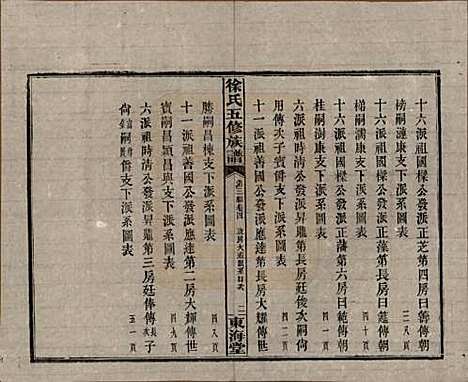 十六派祖國樑公發派正芝第四房曰薈傳朝
榜嗣漣康支下派系圖表 三八頁
十六派祖國樑公發派正藻第長房曰蒓傳朝
梯嗣澍康支下派系圖表 四十頁
十六派祖國樑公發派正藩第六房曰範傳朝
桂嗣濟康支下派系圖表 四一頁
六派祖時清公發派昇龍第長房廷俊次嗣尙
用傳次子賓僑支下派系圖表 四二頁
十一派祖善國公發派應達第長房大煇傳世
徐氏五修族譜
東海堂
勝嗣昌棟支下派系圖表 四八頁
十一派祖善國公發派應達第二房大燿傳世
實嗣昌穎昌與支下派系圖表 四九頁
六派祖時清公發派昇龍第三房廷傳傳長子
尙 支下派系圖表 五一頁